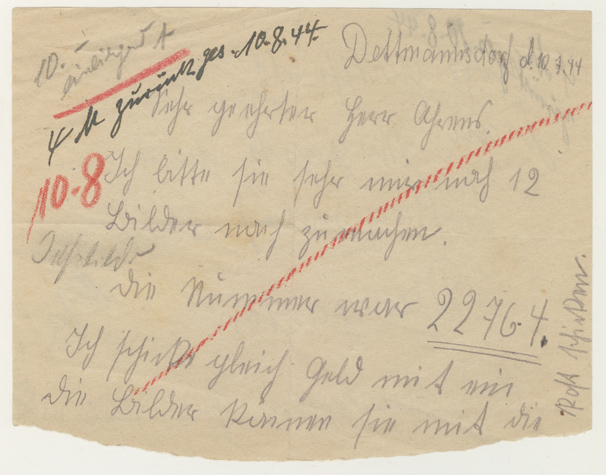 10.-
einliegend
4 M zurück ges. 10.8.44.
Dettmannsdorf d. 10.7.44
Sehr geehrter Herr Ahrens.
10.8
Ich bitte sie sehr mir noch 12
Bilder nach zu machen.
die Nummer war 2276.4.
Ich schicke gleich Geld mit ein
die Bilder können sie mit die
Post schicken.